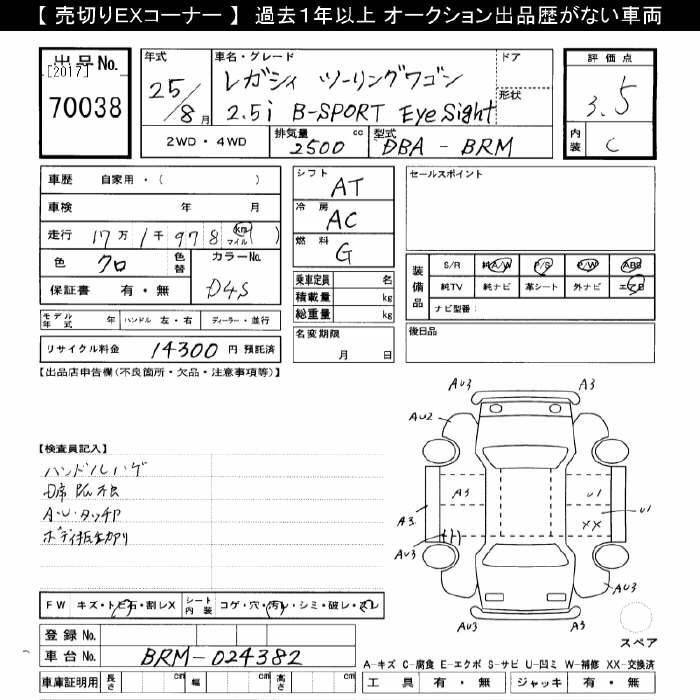 【 売切りEXコーナー 】 過去1年以上 オークション出品歴がない車両
出品No.
[2017]
70038
年式
25/8月
車名・グレード
レガシィ ツーリングワゴン
2.5i B-SPORT EyeSight
ドア
形状
評価点
3.5
内装
C
2WD・4WD
排気量
2500
cc
型式
DBA - BRM
車歴
自家用・( )
車検
年 月
走行
17万1千978
km
マイル
( )
色
クロ
色替
カラーNo.
D4S
保証書
有・無
モデル年式
年
ハンドル
左・右
ディーラー・並行
リサイクル料金
14300
円 預託済
シフト
AT
冷房
AC
燃料
G
乗車定員
名
積載量
kg
総重量
kg
名変期限
月 日
セールスポイント
装備品
S/R
純A/W
P/S
P/W
ABS
純TV
純ナビ
革シート
外ナビ
エアB
ナビ型番:
後日品
【出品店申告欄(不良箇所・欠品・注意事項等)】
【検査員記入】
ハンドルハゲ
A・U・タッチアト
AU3
A3
AU2
A3
U1
A3
XX
U1
AU3
AU3
AU3
A3
FW
キズ・トビ石・割レX
シート内装
コゲ・穴・汚レ・シミ・破レ・スレ
登録No.
車台No.
BRM-024382
車庫証明用
長さ
cm
幅
cm
高さ
cm
スペア
A-キズ C-腐食 E-エクボ S-サビ U-凹ミ W-補修 XX-交換済
工具
有・無
ジャッキ
有・無